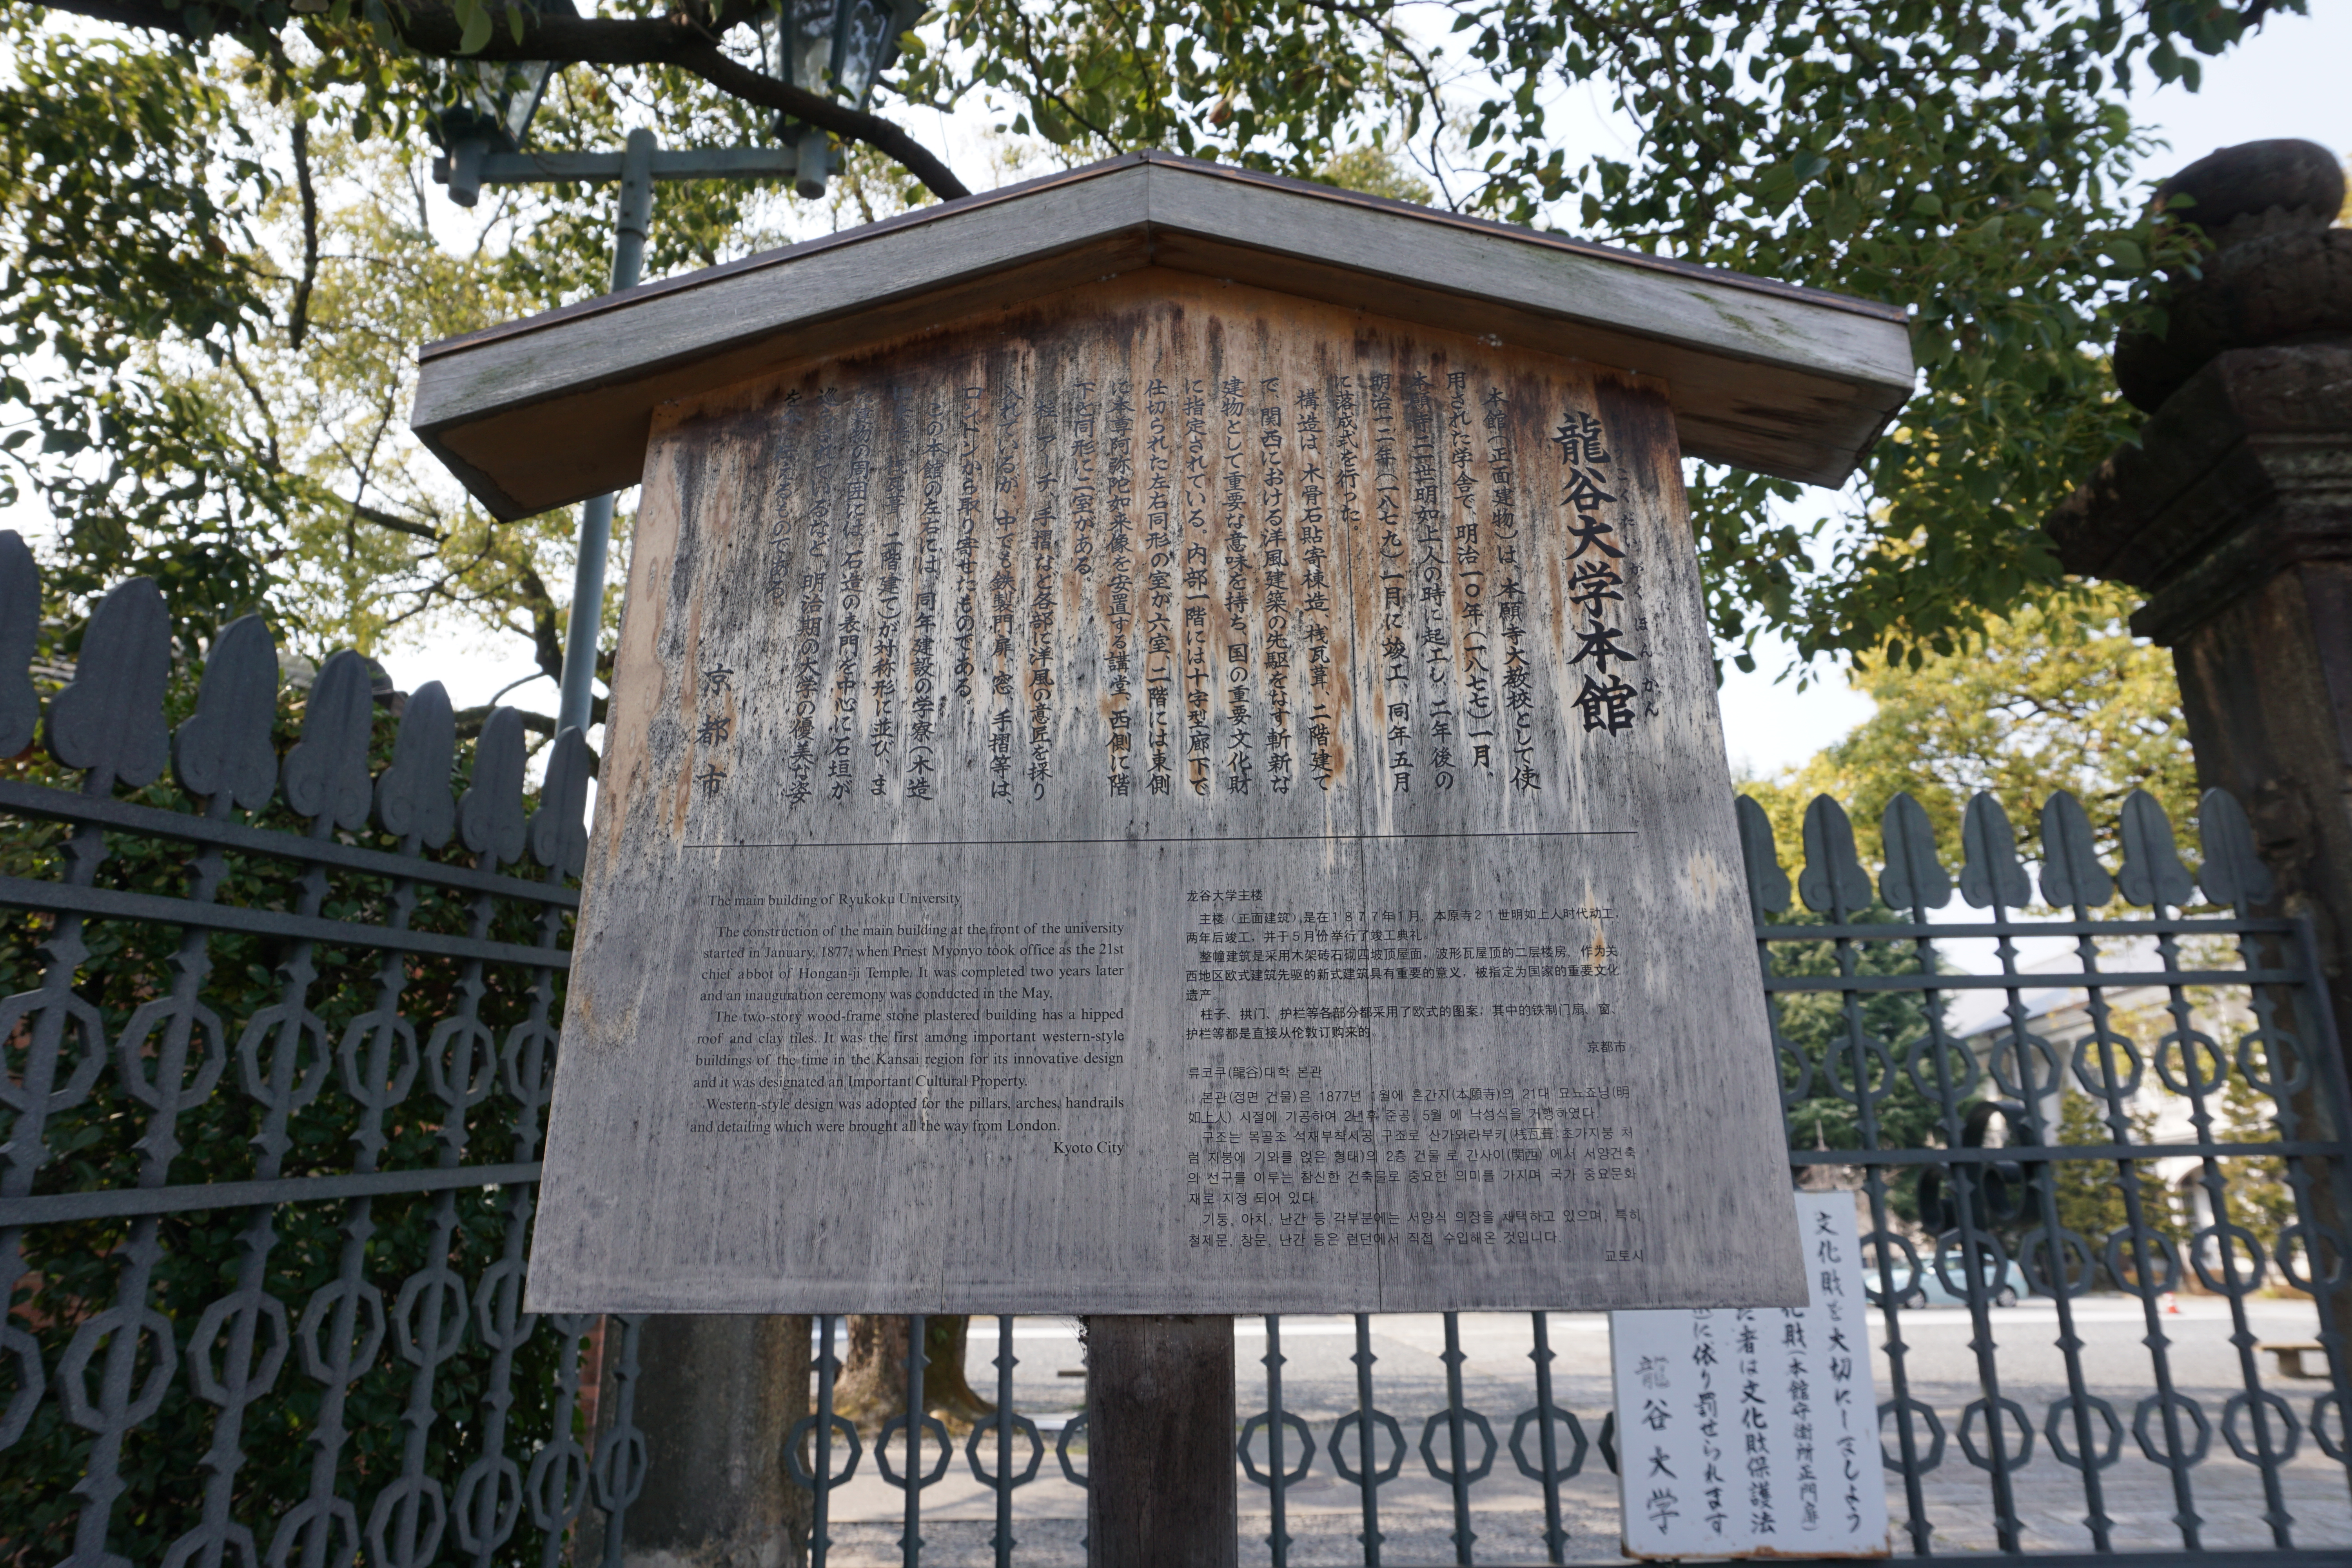 龍谷大学本館
本館(正面建物)は、本願寺大教校として使
用された学舎で、明治一〇年(一八七七)一月、
本願寺二一世明如上人の時に起工し、二年後の
明治一二年(一八七九)一月に竣工、同年五月
に落成式を行った。
構造は、木骨石貼寄棟造、桟瓦葺、二階建て
で、関西における洋風建築の先駆をなす斬新な
建物として重要な意味を持ち、国の重要文化財
に指定されている。内部一階には十字型廊下で
仕切られた左右同形の室が六室、二階には東側
に本尊阿弥陀如来像を安置する講堂、西側に階
下と同形に二室がある。
柱、アーチ、手摺など各部に洋風の意匠を採り
入れているが、中でも鉄製門扉、窓、手摺等は、
ロンドンから取り寄せたものである。
この本館の左右には、同年建設の学寮(木造
瓦葺、二階建て)が対称形に並び、ま
建物の周囲には、石造の表門を中心に石垣が
巡らされているなど、明治期の大学の優美な姿
をるものである。
京都市
The main building of Ryukoku University
The construction of the main building at the front of the university
started in January, 1877, when Priest Myonyo took office as the 21st
chief abbot of Hongan-ji Temple. It was completed two years later
and an inauguration ceremony was conducted in the May.
The two-story wood-frame stone plastered building has a hipped
roof and clay tiles. It was the first among important western-style
buildings of the time in the Kansai region for its innovative design
and it was designated an Important Cultural Property.
Western-style design was adopted for the pillars, arches, handrails
and detailing which were brought all the way from London.
Kyoto City
龙谷大学主楼
主楼（正面建筑）是在１８７７年１月，本原寺２１世明如上人时代动工，
两年后竣工，并于５月份举行了竣工典礼。
整幢建筑是采用木架砖石砌四坡顶屋面，波形瓦屋顶的二层楼房。作为关
西地区欧式建筑先驱的新式建筑具有重要的意义，被指定为国家的重要文化
遗产。
柱子、拱门、护栏等各部分都采用了欧式的图案；其中的铁制门扇、窗、
护栏等都是直接从伦敦订购来的。
京都市
류코쿠(龍谷)대학 본관
본관(정면 건물)은 1877년 1월에 혼간지(本願寺)의 21대 묘뇨쇼닝(明
如上人) 시절에 기공하여 2년후 준공, 5월 에 낙성식을 거행하였다.
구조는 목골조 석재부착시공 구조로 산가와라부키(桟瓦葺:초가지붕 처
럼 지붕에 기와를 얹은 형태)의 2층 건물 로 간사이(関西) 에서 서양건축
의 선구를 이루는 참신한 건축물로 중요한 의미를 가지며 국가 중요문화
재로 지정 되어 있다.
기둥, 아치, 난간 등 각부분에는 서양식 의장을 채택하고 있으며, 특히
철제문, 창문, 난간 등은 런던에서 직접 수입해온 것입니다.
교토시
文化財を大切にしましょう
化財(本館守衛所正門扉)
た者は文化財保護法
に依り罰せられます
龍谷大学